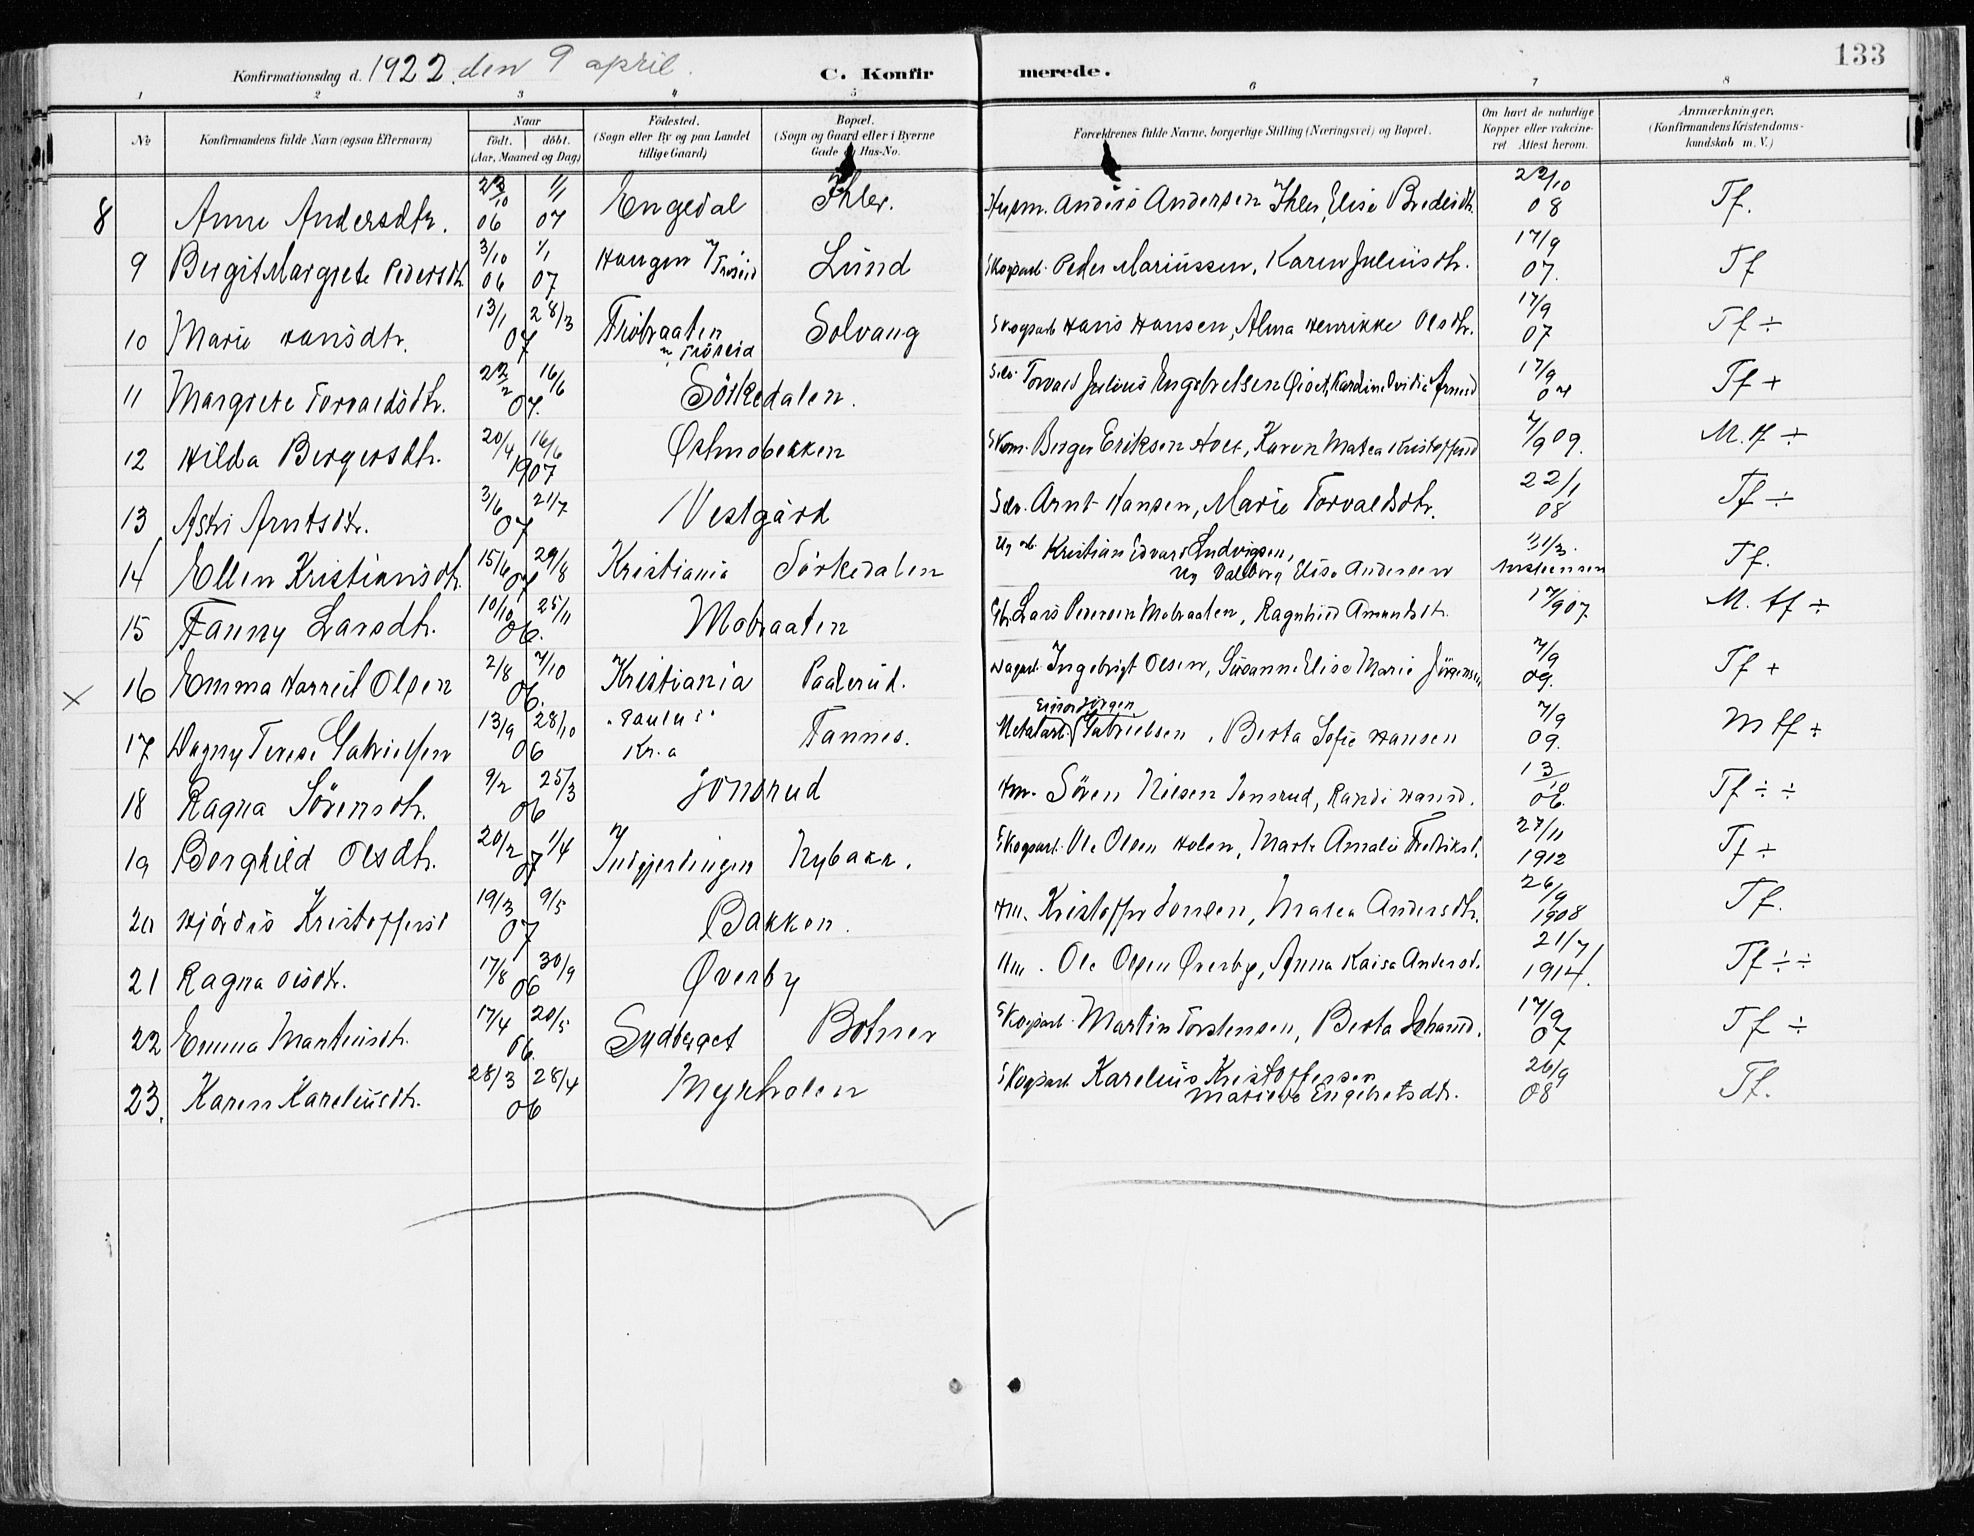 133
Konfirmationsdag d. 1922. den 9 april. C. Konfirmerede.
1 2 3 4 5 6 7 8
No Konfirmandens fulde Navn (ogsaa Efternavn) Naar født. døbt. (Aar, Maaned og Dag) Fødested. (Sogn eller By og paa Landet tillige Gaard) Bopæl. (Sogn og Gaard eller i Byerne Gade og Hus-No. Forældrenes fulde Navne, borgerlige Stilling (Næringsvei) og Bopæl. Om havt de naturlige Kopper eller vakcineret. Attest herom. Anmærkninger. (Konfirmandens Kristendomskundskab m. V.)
8 Anne Andersdtr. 22/10 06 1/1 07 Engedal Ihler. Husm. Anders Andersen Ihler, Elise Bredesdtr. 22/10 08 Tf.
9 Bergit Margrete Pedersdtr 3/10 06 1/1 07 Haugen Lund Skogsarb. Peder Mariussen, Karen Juliusdtr. 17/9 07. Tf
10 Marie Hansdtr. 13/1 28/3 07 Fløbraaten Solvang Skogsarb Hans Hansen, Alma Henrikke Olsdtr. 17/9 07 Tf ÷
11 Margrete Torvaldsdtr. 22/2 16/6 07. Sörkedalen. Torvald Julius Engebretsen 17/9 07 Tf +
12 Hilda Bergersdtr. 20/4 16/6 1907 Berger Eriksen Karen Matea 7/9 09. M. tf ÷
13 Astri Arntsdtr. 3/6 21/7 07 Vestgård Arnt Hansen, Marie Torvaldsdtr. 22/1 08 Tf ÷
14 Ellen Kristiansdtr. 15/6 29/8 07 Kristiania Sörkedalen Kristian Edvard Ludvigsen, Ug Valborg Elise Andersen 31/3. Tf.
15 Fanny Larsdtr. 10/10 25/11 06. Mobraaten Lars Pedersen Mobraaten, Ragnhild Amundsdtr. 17/9 07. M. tf ÷
× 16 Emma Harriet Olsen 2/8 7/10 06. Kristiania Paalerud. Ingebrigt Olsen, Susanne Elise Marie Jörgensen 7/9 09. Tf +
17 Dagny Terese Gabrielsen 13/9 28/10 06 "Paulus" Kr.a Tannes. Metalarb. Einar Jörgen Gabrielsen, Berta Sofie Hansen 7/9 09. M tf +
18 Ragna Sörensdtr. 9/2 25/3 06 Jonsrud Sören Nilsen Jonsrud, Randi Hansd. 13/10 06. Tf ÷ ÷
19 Borghild Olsdtr. 20/2 1/4 07 Nybakk. Skogsarb. Ole Olsen Holen, Marte Amalie Fredriksd. 27/11 1912 Tf ÷
20 Hjördis Kristoffersd 19/3 9/5 07 Bakken. Kristoffer Jonsen, Matea Andersdtr. 26/9 1908 Tf.
21 Ragna Olsdtr. 17/8 30/9 06 Øverby Ole Olsen Øverby, Anna Kaisa Andersd. 21/7 1914. Tf ÷ ÷
22 Emma Martinsdtr. 17/4 20/5 06. Sydberget Botner Skogsarb. Martin Torstensen, Berta Johansd. 17/9 07 Tf ÷
23. Karen Kareliusdtr. 28/3 28/4 06 Myrholen Skogsarb. Karelius Kristoffersen Engebretsdtr. 26/9 08 Tf.